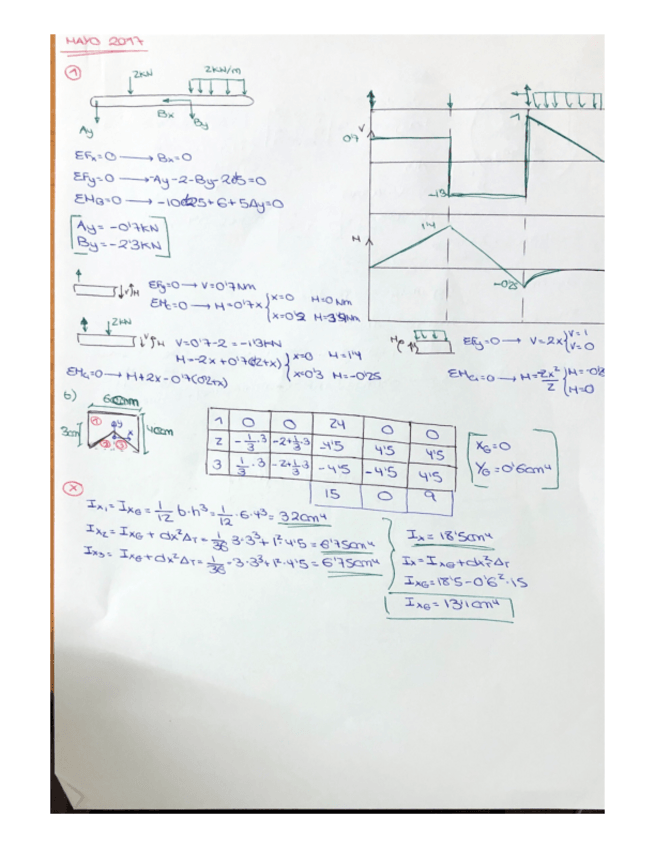 MAYO 2017
1
2KN
2KN/m
Ay
Bx
By
ΣFx=0 → Bx=0
ΣFy=0 → -Ay-2-By-2·0'5=0
Ay= -0'7KN
By= -2'3KN
V
0'7
-1'3
1
M
1'4
-0'25
ΣFy=0 → V=0'7
ΣMc=0 → M=0'7x
x=0 M=0Nm
2KN
V=0'7-2=-1'3KN
M=-2x+0'7(0'2+x)
x=0 M=1'4
x=0'3 M=-0'25
ΣMc=0 → M+2x-0'7(0'2+x)
ΣFy=0 → V=2x
V=1
V=0
ΣMc=0 → M=-2x²/2
M=0
b)
3cm
4cm
1 0 0 24 0 0
2 -1/3·3 -2+1/3·3 -4'5 4'5 4'5
3 1/3·3 -2+1/3·3 -4'5 -4'5 4'5
15 0 9
XG=0
YG=0'6cm⁴
x
Ix1=IxG=1/12 b·h³=1/12·6·4³=32cm⁴
Ix2=IxG+dx²AT=1/36·3·3³+1²·4'5=6'75cm⁴
Ix3=IxG+dx²AT=1/36·3·3³+1²·4'5=6'75cm⁴
Ix=18'5cm⁴
Ix=IxG+dx²AT
IxG=18'5-0'6²·15
IxG=13'1cm⁴